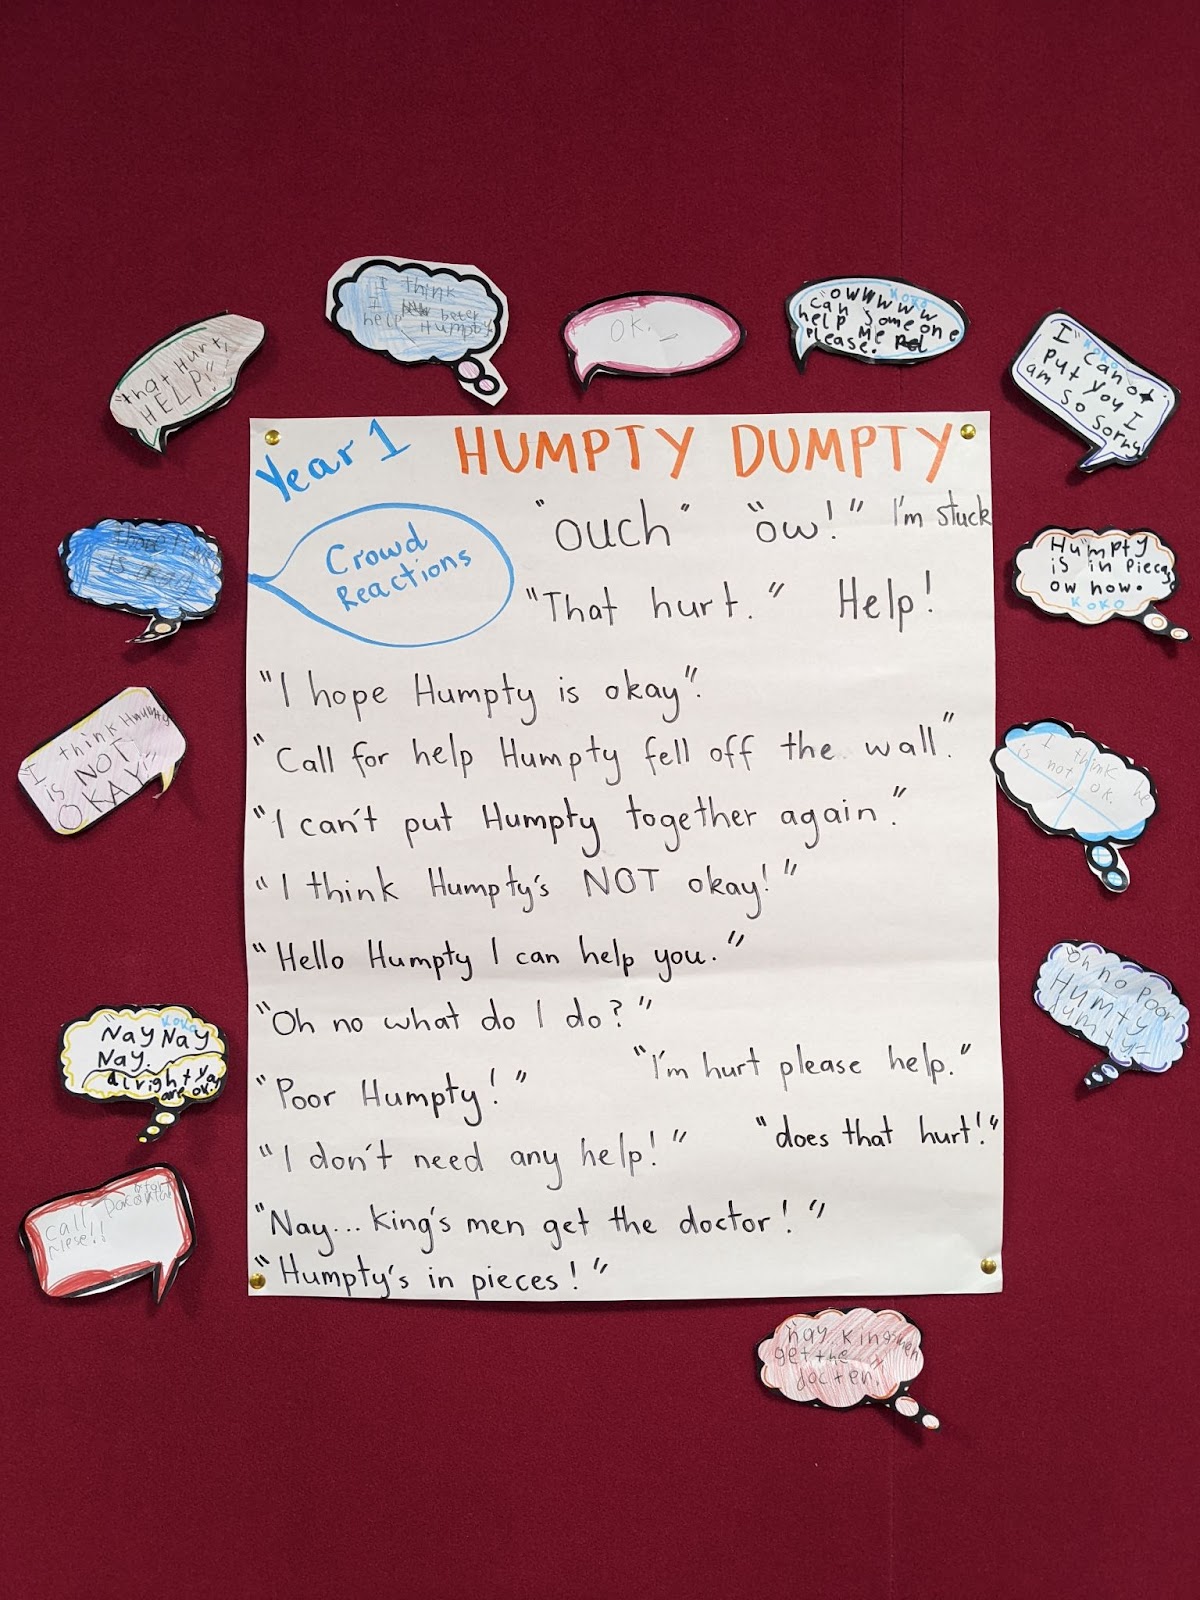 Year 1 HUMPTY DUMPTY
Crowd
Reactions
"ouch" "ow!" I'm stuck
"That hurt." Help!
"I hope Humpty is okay".
"Call for help Humpty fell off the wall."
"I can't put Humpty together again."
"I think Humpty's NOT okay!"
"Hello Humpty I can help you."
"Oh no what do I do?"
"I'm hurt please help."
"Poor Humpty!"
"does that hurt!"
"I don't need any help!"
"Nay... King's men get the doctor!"
"Humpty's in pieces!"
"that Hurt,
HELP!"
I think
help beter
Humpty
OK.
KOKO
"OWWWWW
can someone
help me
please.
KOKO
I" can ot
put you I
am so sorry
Hu"mpty
is in piecs
ow now.
KOKO
I think he
is not ok.
"Oh no poor
Humty
is ok
I think Humpty
is NOT
OKAY!
KOKO
"Nay Nay
Nay.
alright ya
are ok.
call
plese!!
"nay kingsmen
get the
docter!"